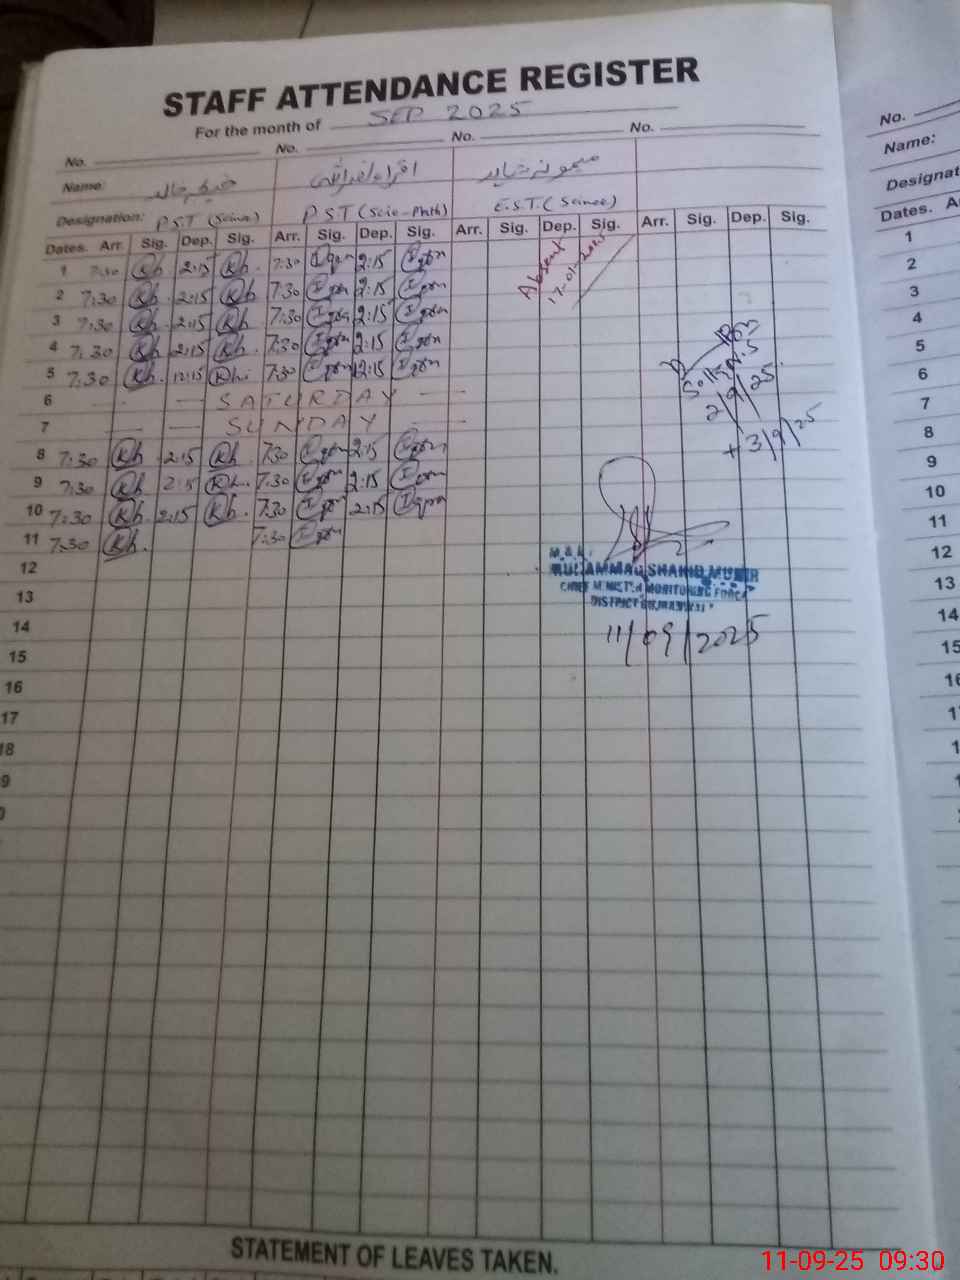 STAFF ATTENDANCE REGISTER
For the month of SEP 2025
No. No. No. No.
Name: خدیجہ خالد اقراء میمونہ شاہد
Designation: P.S.T (Science) P.S.T (Scie-Math) E.S.T. (Science)
Dates. Arr. Sig. Dep. Sig. Arr. Sig. Dep. Sig. Arr. Sig. Dep. Sig. Arr. Sig. Dep. Sig.
1 7:30 Kh 2:15 Kh. 7:30 Iqra 2:15 Iqra
2 7:30 Kh 2:15 Kh 7:30 Iqra 2:15 Iqra
3 7:30 Kh 2:15 Kh 7:30 Iqra 2:15 Iqra
4 7:30 Kh 2:15 Kh. 7:30 Iqra 2:15 Iqra
5 7:30 Kh. 12:15 Kh. 7:30 Iqra 12:15 Iqra
6 SATURDAY
7 SUNDAY
8 7:30 Kh 2:15 Kh. 7:30 Iqra 2:15 Iqra
9 7:30 Kh 2:15 Kh. 7:30 Iqra 2:15 Iqra
10 7:30 Kh. 2:15 Kh. 7:30 Iqra 2:15 Iqra
11 7:30 Kh. 7:30 Iqra
12
13
14
15
16
17
18
Absent
2/9/25
+ 3/9/25
MUHAMMAD SHAHID MUNIR
CHIEF MINISTER MONITORING FORCE
DISTRICT
11/09/2025
STATEMENT OF LEAVES TAKEN.
No.
Name:
Designat
Dates. A
1
2
3
4
5
6
7
8
9
10
11
12
13
14
15
16
11-09-25 09:30